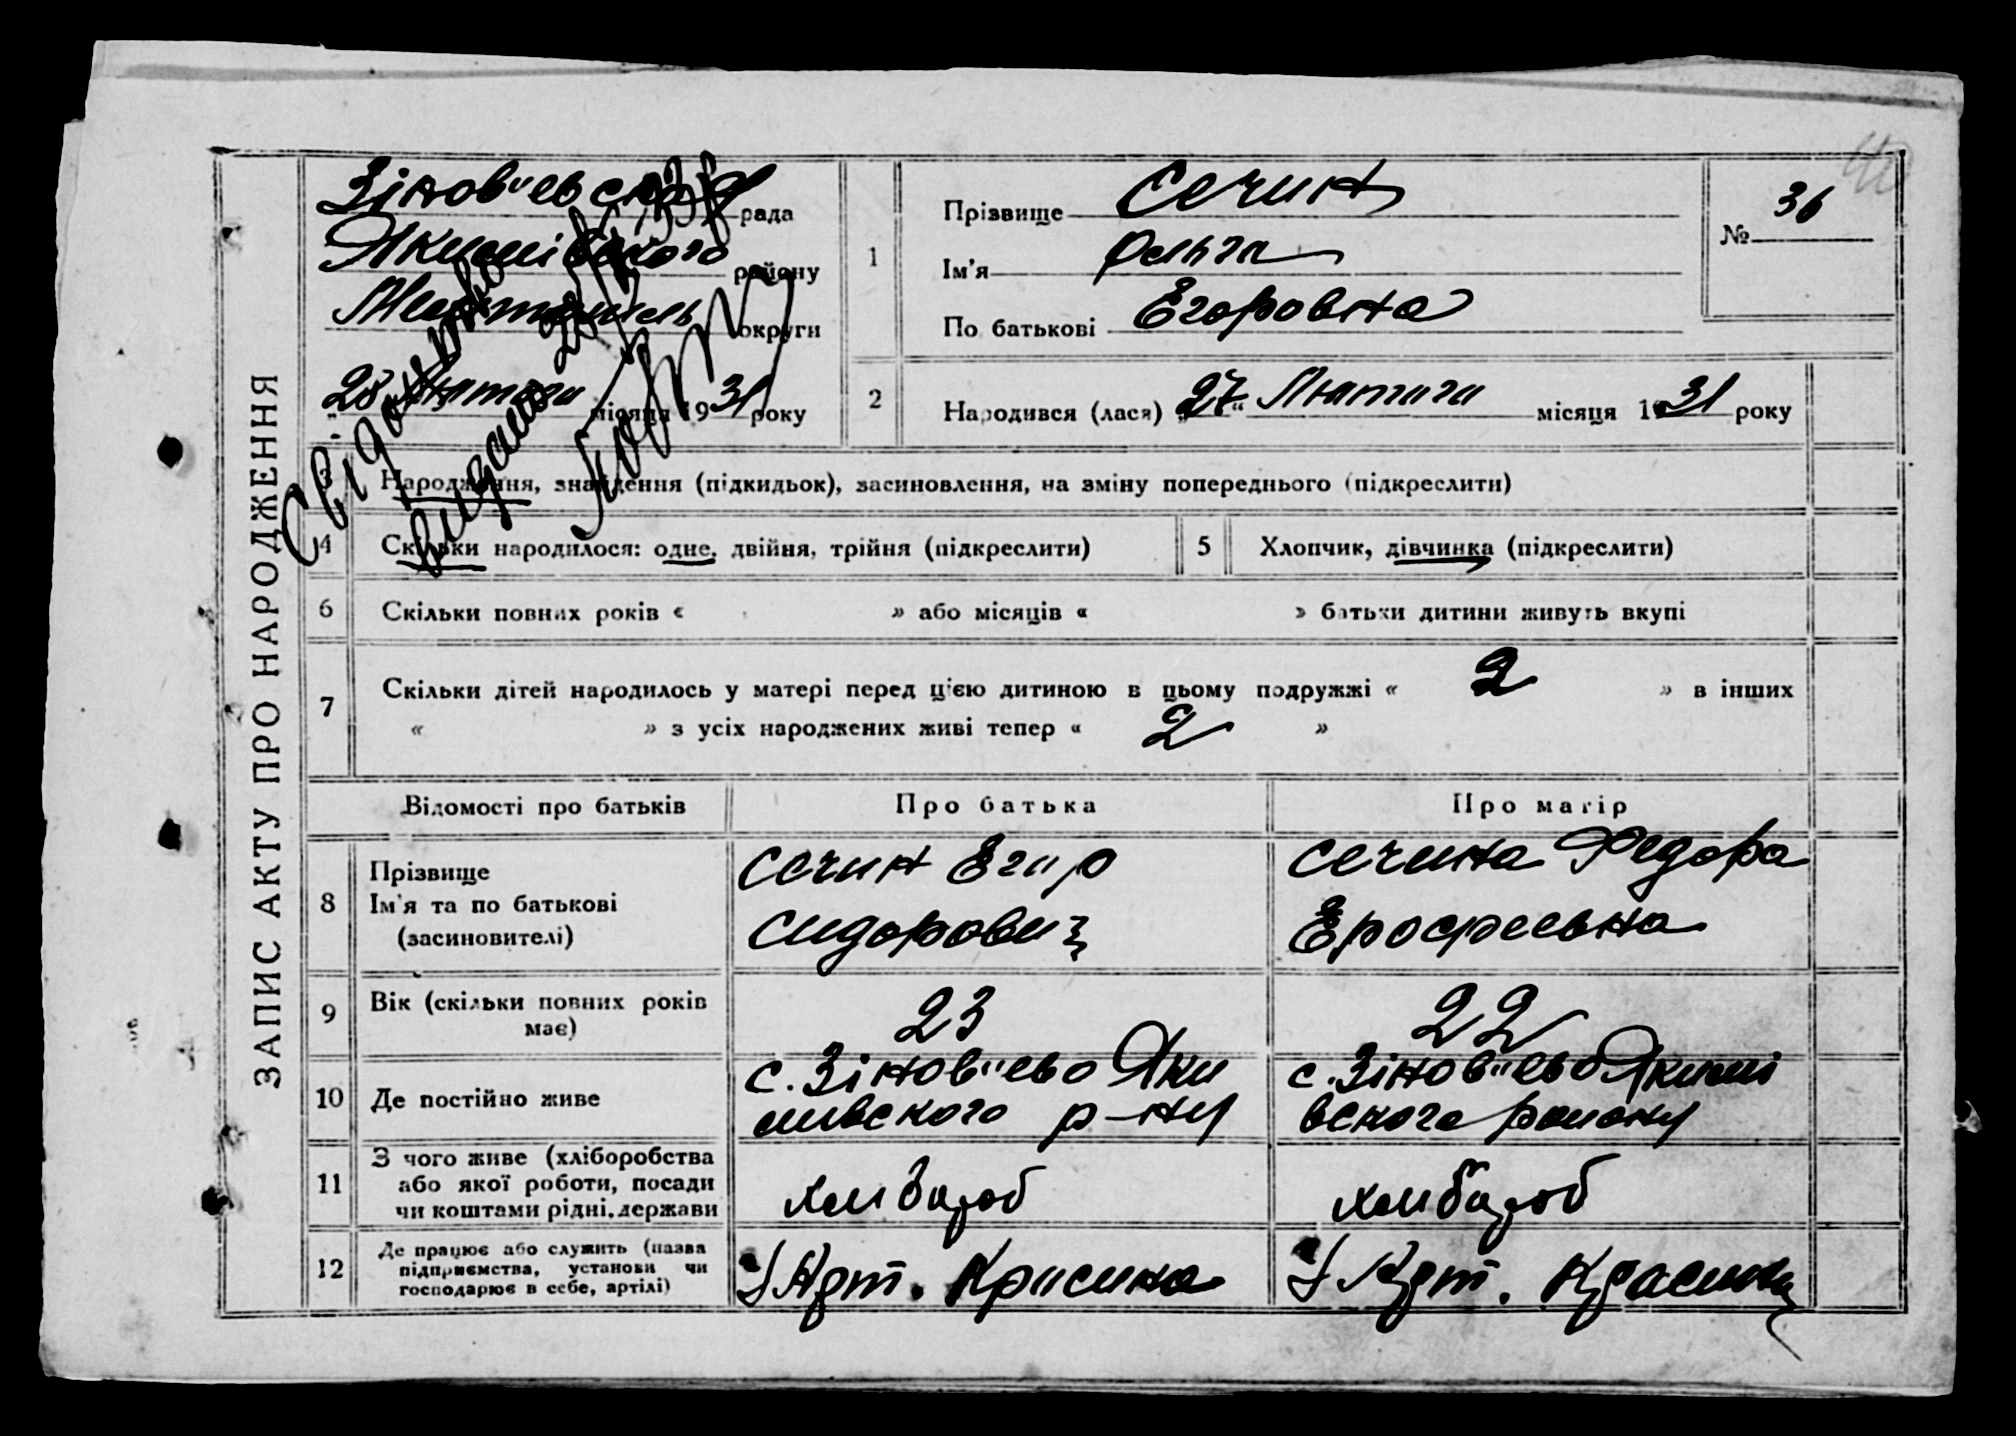 ЗАПИС АКТУ ПРО НАРОДЖЕННЯ
40
Зінов'евска рада
Якимівського району
Мелітопіль округи
28 Лютого місяця 1931 року
Свідоцтво
видано
1 Прізвище Сечин
Ім'я Ольга
По батькові Егоровна
№ 36
2 Народився (лася) „27“ Лютого місяця 1931 року
3 Народження, знайдення (підкидьок), засиновлення, на зміну попереднього (підкреслити)
4 Скільки народилося: одне, двійня, трійня (підкреслити)
5 Хлопчик, дівчинка (підкреслити)
6 Скільки повних років « » або місяців « » батьки дитини живуть вкупі
7 Скільки дітей народилось у матері перед цією дитиною в цьому подружжі « 2 » в інших
« » з усіх народжених живі тепер « 2 »
Відомості про батьків Про батька Про матір
8 Прізвище
Ім'я та по батькові
(засиновителі)
Сечин Егор
Сидорович
Сечина Федора
Ерофеевна
9 Вік (скільки повних років
має)
23
22
10 Де постійно живе
с. Зінов'ево Яки
мивского р-ну
с. Зінов'ево Якимі
вского району
11 З чого живе (хліборобства
або якої роботи, посади
чи коштами рідні, держави
хлибороб
хлибороб
12 Де працює або служить (назва
підприємства, установи чи
господарює в себе, артілі)
У Арт. Красина
У Арт. Красина